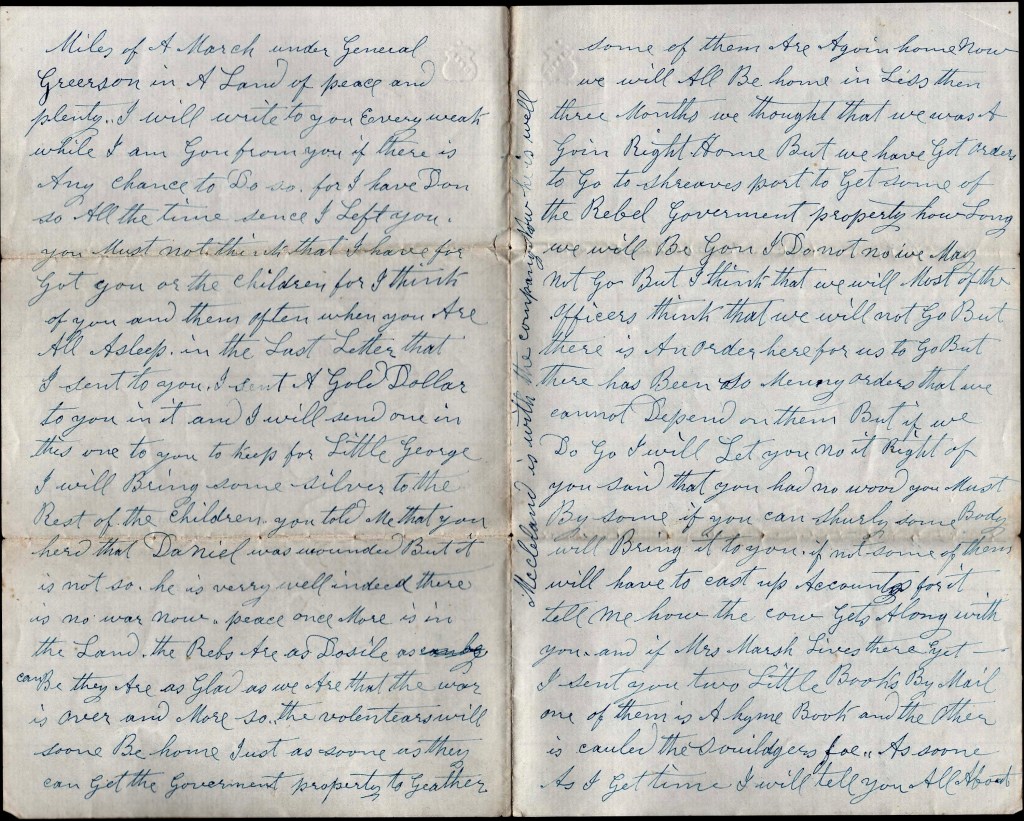 Miles of A March under General
Greerson in A Land of peace and
plenty.. I will write to you Eevery weak
while I am Gon from you if there is
Any chance to Do so. for I have Don
so All the time sence I Left you.
you Must not think that I have for
Got you or the children for I think
of you and them often when you Are
All Asleep. in the Last Letter that
I sent to you. I sent A Gold Dollar
to you in it and I will send one in
this one to you to keep for Little George
I will Bring some silver to the
Rest of the children. you told Me that you
herd that Daniel was wounded But it
is not so. he is verry well indeed there
is no war now. peace once More is in
the Land. the Rebs Are as Dosile as
can Be they Are as Glad as we Are that the war
is over and More so. the volentears will
soone Be home Just as soone as they
can Get the Goverment property to Geather
Mccleland is with the company now he is well
some of them Are Agoin home Now
we will All Be home in Liss then
three Months we thought that we was A
Goin Right Home But we have Got orders
to Go to shreaves port to Get some of
the Rebel Goverment property how Long
we will Be Gon I Do not no we May
not Go But I think that we will Most of the
officers think that we will not Go But
there is An order here for us to Go But
there has Been so Menny orders that we
cannot Depend on them But if we
Do Go I will Let you no it Right of
you said that you had no wood you Must
By some if you can shurly some Body
will Bring it to you. if not some of them
will have to cast up Accounts for it
tell me how the cow Gets Along with
you. and if Mrs Marsh Lives there yet
I sent you two Little Books By Mail
one of them is A hyme Book and the other
is cauled the souildgers foe.. As soone
As I Get time I will tell you All About